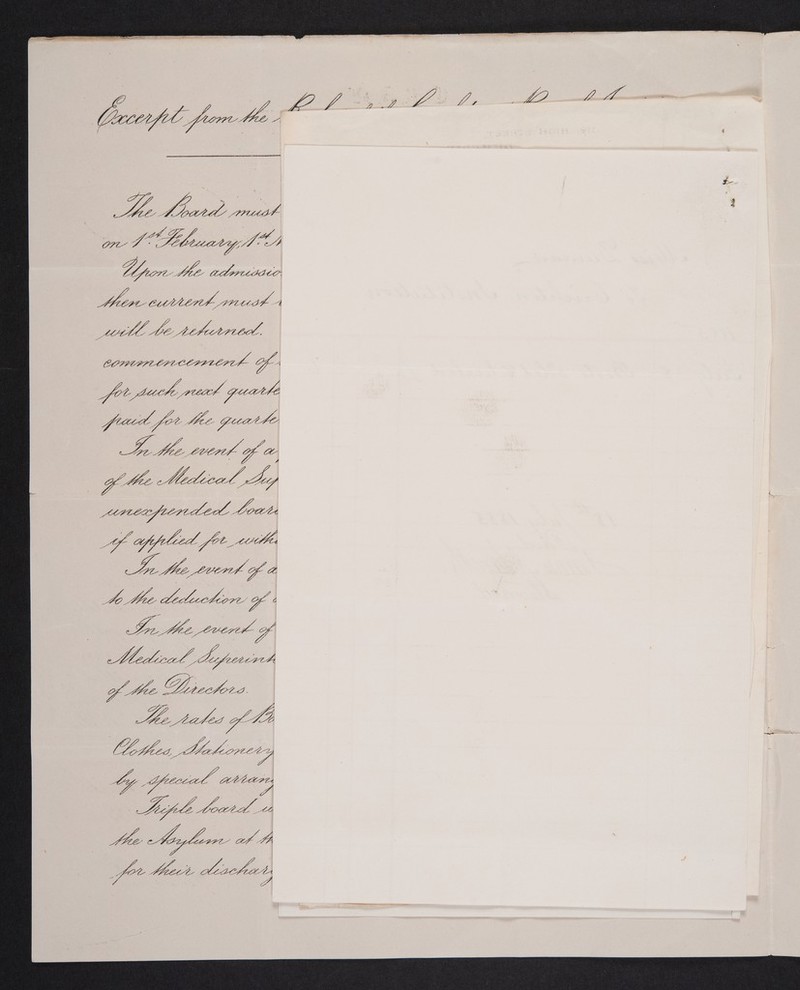 Excerpt from the
The Board must
on 1st February, 1st
Upon the admissio
then current must
will be returned.
commencement of
for such next quarte
paid for the quarte
In the event of a
of the Medical Sup
unexpended boar
if applied for with
In the event of a
to the deduction of
In the event of
Medical Superint
of the Directors.
The rates of Bo
Clothes, Stationery
by special arran
Triple board
the Asylum at th
for their dischar